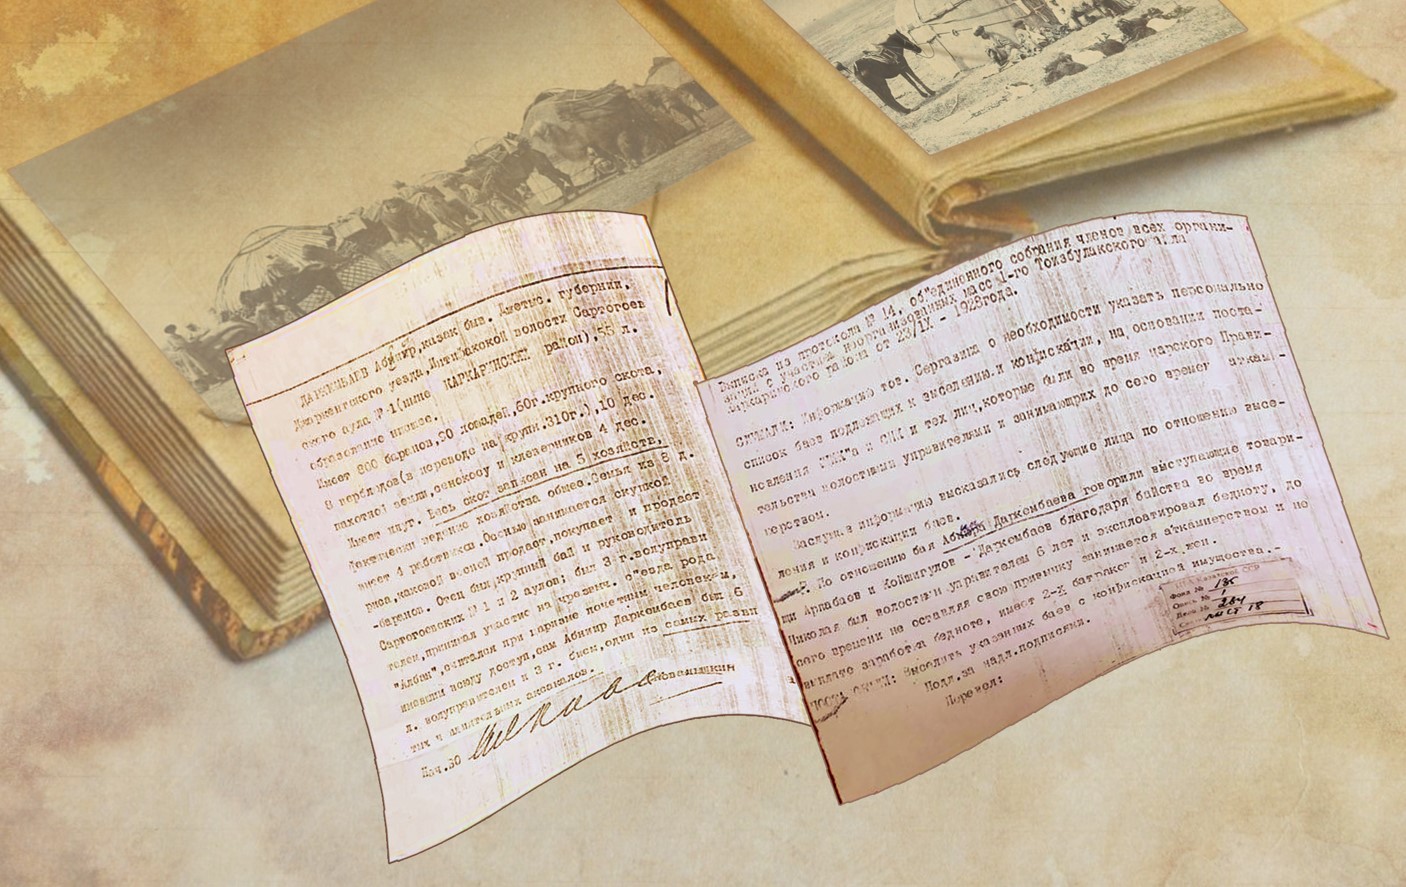 ДАРКЕМБАЕВ Абинир, казак быв. Джетыс. губернии,
Джаркентского уезда, волости Сартогоев
ского аула № 1 (ныне НАРКАРИНСКИЙ район), 55 л.
образование низшее.
Имеет 800 баранов, 90 лошадей, 50г. крупного скота,
8 верблюдов (в переводе на крупн. 310г.), 10 дес.
пахотной земли, сенокосу и клеверников 4 дес.
Имеет плуг. Весь скот записан на 5 хозяйств,
фактически ведение хозяйства общее. Семья из 8 л.
имеет 4 работника. Осенью занимается скупкой
риса, каковой весной продает, покупает и продает
Отец был крупный бай и руководитель
Сартогоевских № 1 и 2 аулов; был 3 г. волуправи
телем, принимая участие на чрезвыч. с'езда рода
"Албан", считался при царизме почетным человеком,
имевший всюду доступ, сам Абинир Даркембаев был 6
л. волуправителем и 3 г. бием, один из самых разви
тых и влиятельных аксакалов.
Нач. ЭО
Выписка из протокола № 14, об'единенного собрания членов всех органи-
заций с участием неорганизованных масс 1-го Тоизбулакского аула
района от 23/IX - 1928года.
СЛУШАЛИ: Информацию тов. о необходимости указать персонально
список баев подлежащих к выселению и конфискации, на основании поста-
новления ЦИК"а и СНК и тех лиц, которые были во время царского Прави-
тельства волостными управителями и занимающих до сего времени
терством.
Заслушав информацию высказались следующие лица по отношению высе-
ления и конфискации баев.
По отношению бая Абинира Даркембаева говорили выступающие товари-
щи Арпабаев и Койшигулов - Даркембаев благодаря байства во время
Николая был волостным управителем 6 лет и эксплоатировал бедноту, до
сего времени не оставляя свою привычку занимается аткамнерством и не
выплате заработка бедноте, имеет 2-х батраков и 2-х жен.
Выселить указанных баев с конфискацией имущества..
Подл. за надл. подписями.
Перевел:
Фонд № 135
Опись № 1
Дело № 284
Лист 18